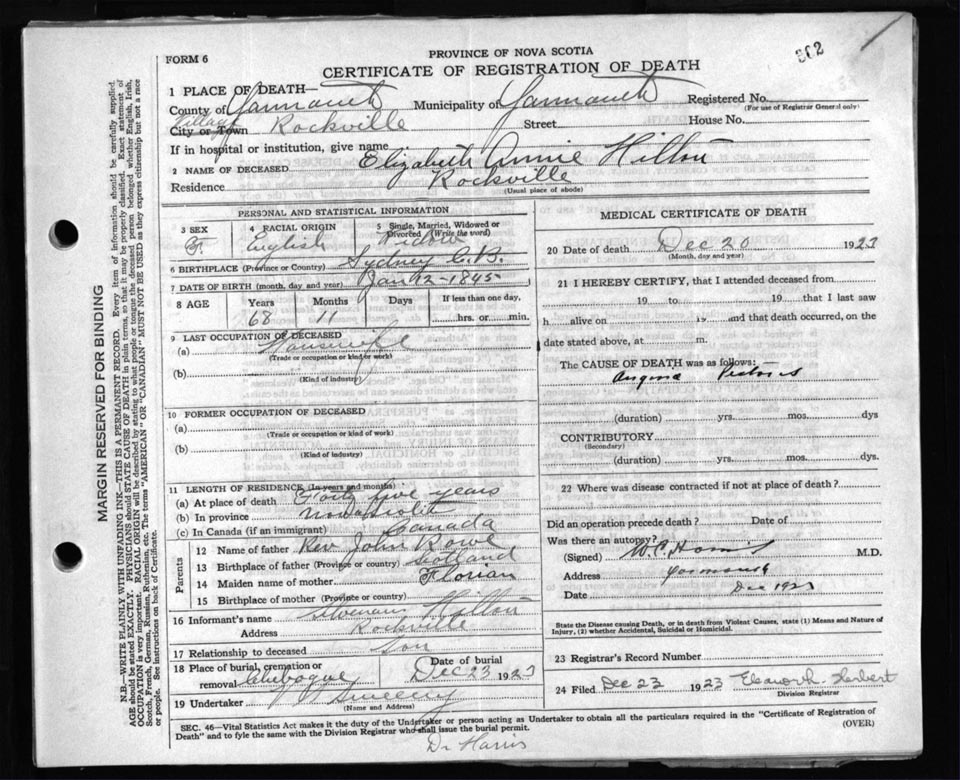 302
FORM 6
PROVINCE OF NOVA SCOTIA
CERTIFICATE OF REGISTRATION OF DEATH
1 PLACE OF DEATH—
County of Yarmouth Municipality of Yarmouth Registered No.
(For use of Registrar General only)
Village
City or Town Rockville Street House No.
If in hospital or institution, give name
2 NAME OF DECEASED Elizabeth Annie Hilton
Residence Rockville
(Usual place of abode)
PERSONAL AND STATISTICAL INFORMATION
3 SEX F. 4 RACIAL ORIGIN English 5 Single, Married, Widowed or Divorced (Write the word) Widow
6 BIRTHPLACE (Province or Country) Sydney C.B.
7 DATE OF BIRTH (month, day and year) Jan 12-1845
8 AGE Years Months Days If less than one day,
68 11 hrs. or min.
9 LAST OCCUPATION OF DECEASED
(a) Housewife
(Trade or occupation or kind of work)
(b)
(Kind of industry)
10 FORMER OCCUPATION OF DECEASED
(a)
(Trade or occupation or kind of work)
(b)
(Kind of industry)
11 LENGTH OF RESIDENCE (In years and months)
(a) At place of death Forty five years
(b) In province Nova Scotia
(c) In Canada (if an immigrant) Canada
Parents
12 Name of father Rev John Rowe
13 Birthplace of father (Province or country) Scotland
14 Maiden name of mother Florian
15 Birthplace of mother (Province or country)
16 Informant's name Hilton
Address Rockville
17 Relationship to deceased Son
18 Place of burial, cremation or removal Chebogue Date of burial Dec 23 1923
19 Undertaker Sweeny
(Name and Address)
MEDICAL CERTIFICATE OF DEATH
20 Date of death Dec 20 1923
(Month, day and year)
21 I HEREBY CERTIFY, that I attended deceased from
19 to 19 that I last saw
h alive on 19 and that death occurred, on
date stated above, at m.
The CAUSE OF DEATH was as follows:—
Angina Pectoris
(duration) yrs. mos. dys
CONTRIBUTORY
(Secondary)
(duration) yrs. mos. dys.
22 Where was disease contracted if not at place of death?
Did an operation precede death? Date of
Was there an autopsy?
(Signed) M.D.
Address Yarmouth
Date Dec 1923
State the Disease causing Death, or in death from Violent Causes, state (1) Means and Nature of Injury, (2) whether Accidental, Suicidal or Homicidal.
23 Registrar's Record Number
24 Filed Dec 23 1923 Herbert
Division Registrar
SEC. 46—Vital Statistics Act makes it the duty of the Undertaker or person acting as Undertaker to obtain all the particulars required in the "Certificate of Registration of Death" and to fyle the same with the Division Registrar who shall issue the burial permit. (OVER)
Dr Harris
MARGIN RESERVED FOR BINDING
N.B.—WRITE PLAINLY WITH UNFADING INK—THIS IS A PERMANENT RECORD. Every item of information should be carefully supplied.
AGE should be stated EXACTLY. PHYSICIANS should STATE CAUSE OF DEATH in plain terms, so that it may be properly classified. Exact statement of
OCCUPATION is very important. RACIAL ORIGIN will be described by stating to what people or tongue the deceased person belonged whether English, Irish,
Scotch, French, German, Russian, Ruthenian, etc. The terms "AMERICAN" OR "CANADIAN" MUST NOT BE USED as they express citizenship but not a race
or people. See instructions on back of Certificate.